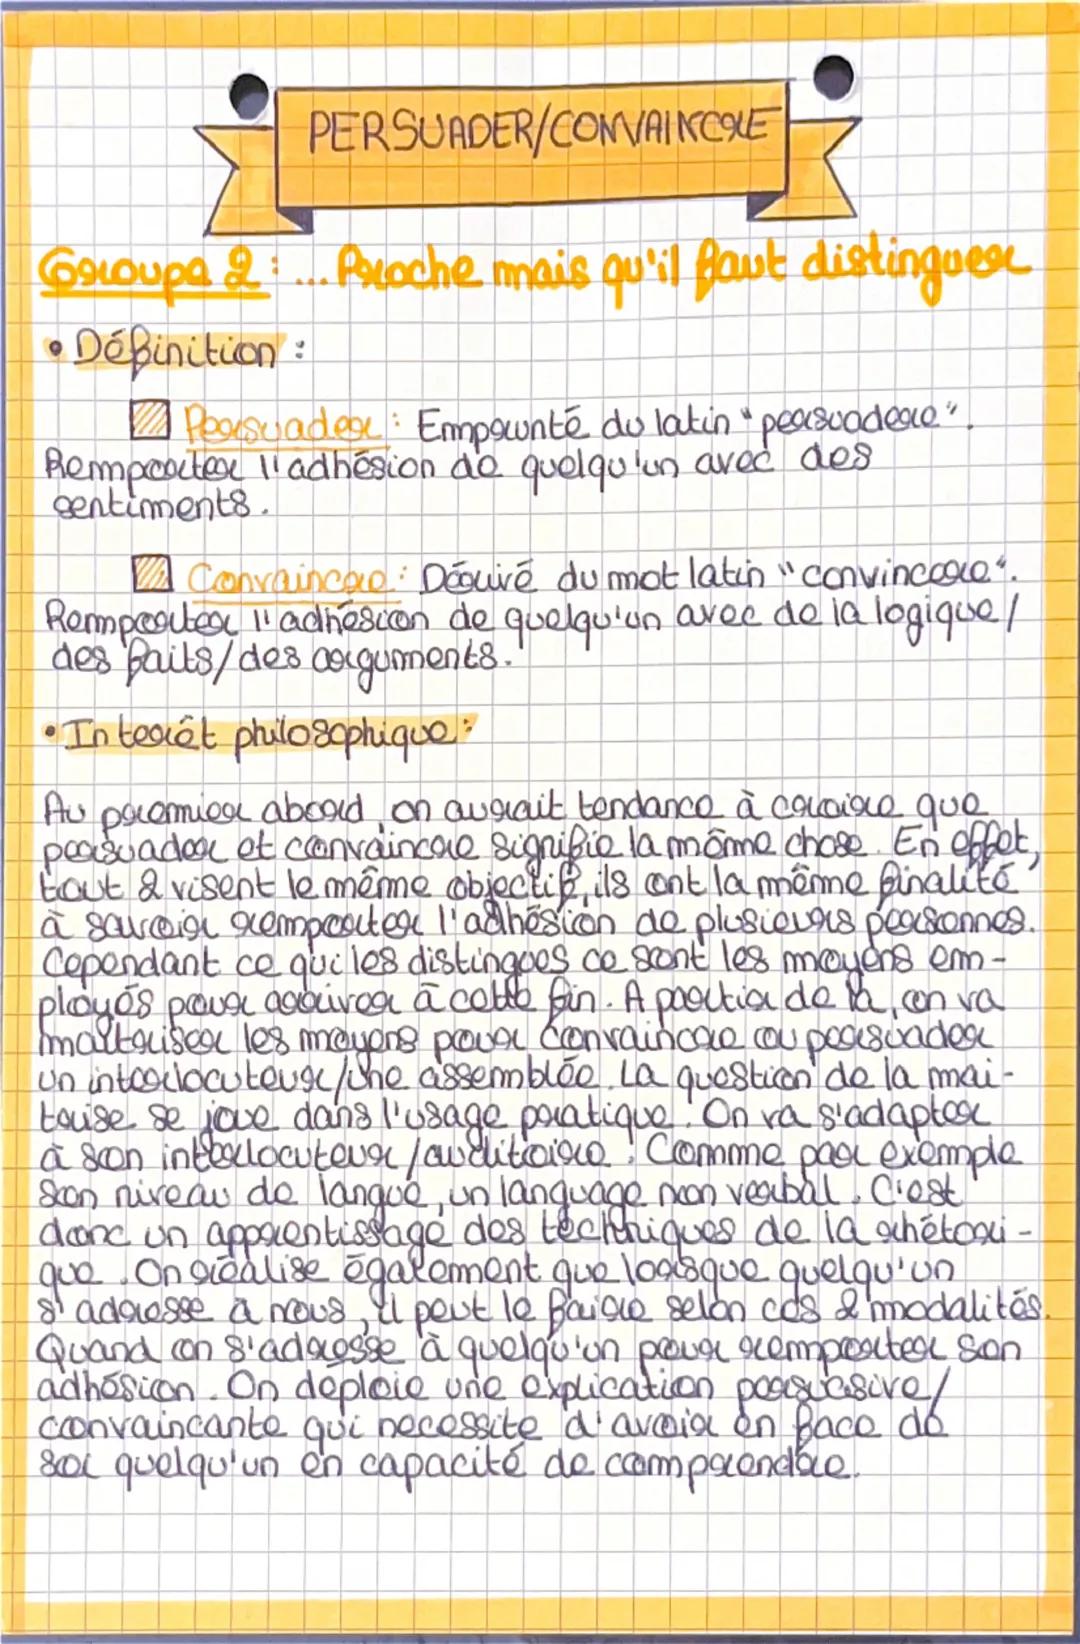 PERSUADER/CONVAINCRE
Groupe 2 : ... Proche mais qu'il faut distinguer
• Définition :
Persuader : Emprunté du latin "persuadere".
Remporter l'adhésion de quelqu'un avec des
sentiments.
Convaincre : Dérivé du mot latin "convincere".
Remporter l'adhésion de quelqu'un avec de la logique/
des faits/des arguments.
• Interêt philosophique :
Au premier abord, on aurait tendance à croire que
persuader et convaincre signifie la même chose. En effet,
tout 2 visent le même objectif, ils ont la même finalité
à savoir remporter l'adhésion de plusieurs personnes.
Cependant ce qui les distingues ce sont les moyens em-
ployés pour arriver à cette fin. A partir de la, on va
maîtriser les moyens pour convaincre ou persuader
un interlocuteur/une assemblée. La question de la mai-
trise se joue dans l'usage pratique. On va s'adapter
à son interlocuteur/auditoire. Comme par exemple
son niveau de langue, un language non verbal. C'est
donc un apprentissage des techniques de la rhétori-
que. On réalise également que lorsque quelqu'un
s'adresse à nous, il peut le faire selon ces 2 modalités.
Quand on s'adresse à quelqu'un pour remporter son
adhésion. On déploie une explication persuasive/
convaincante qui necessite d'avoir en face de
soi quelqu'un en capacité de comprendre.